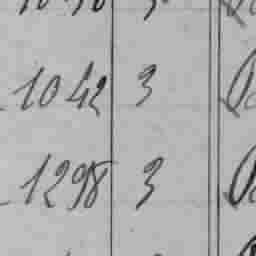 1042 3
1298 3